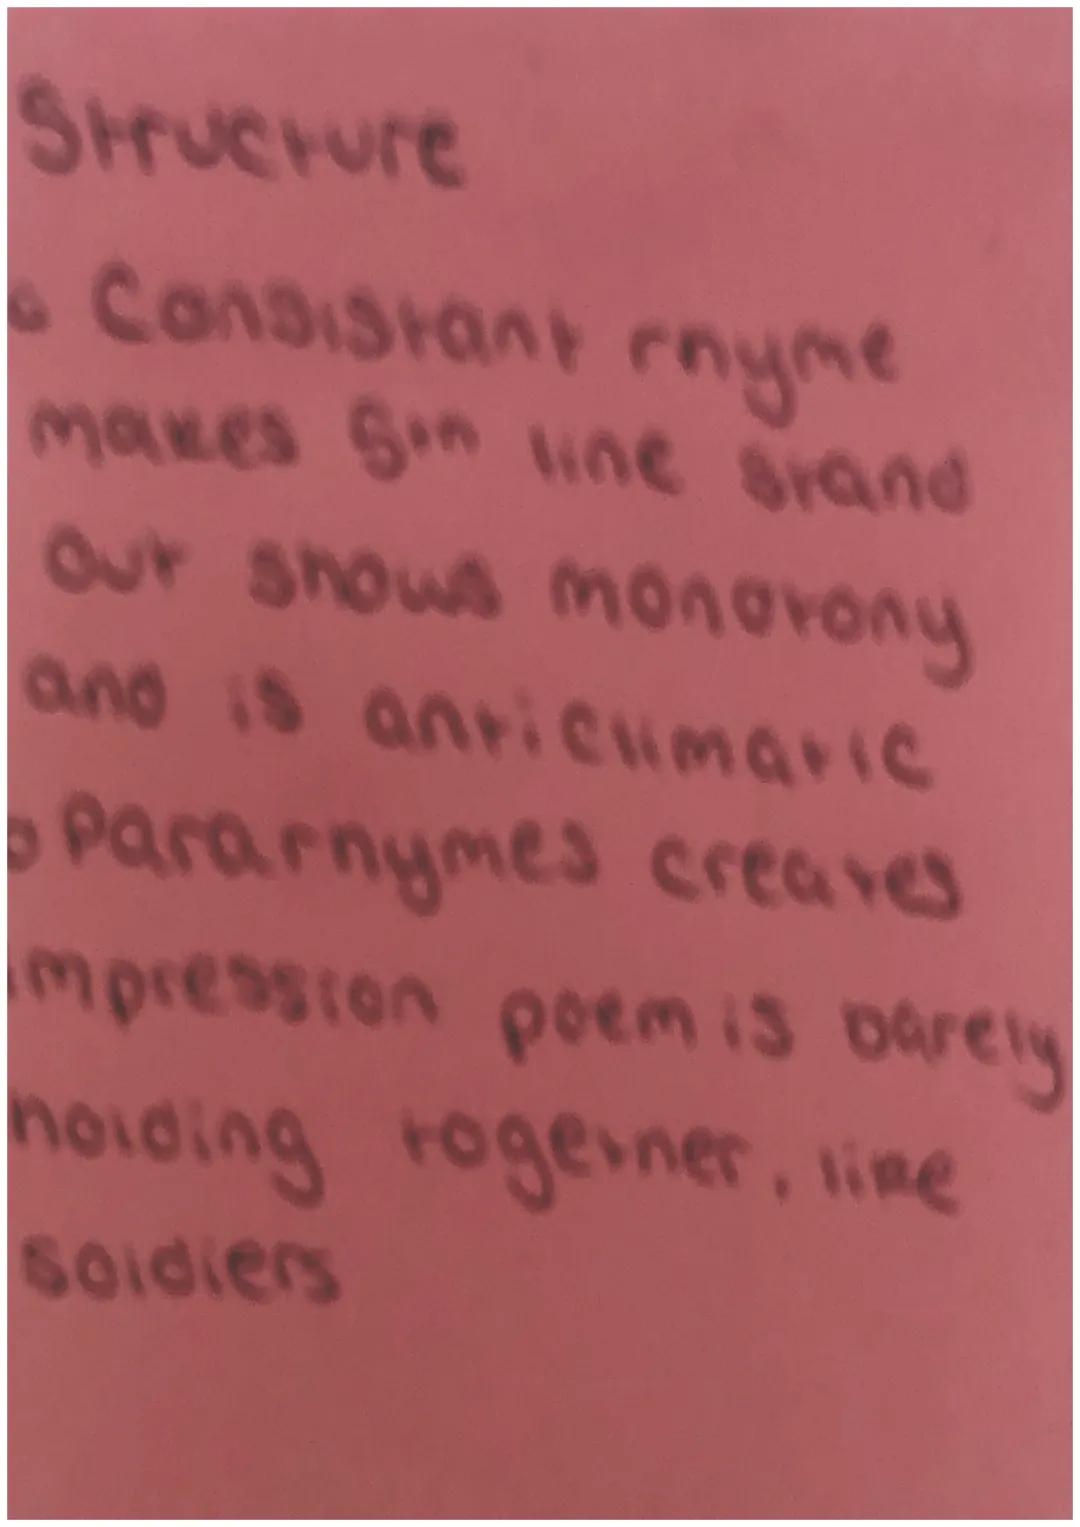 Structure
• Consistant rhyme
makes 5th line stand
out shows monotony
and is anticlimatic
• Pararhymes creates
impression poem is barely
holding together, like
soldiers